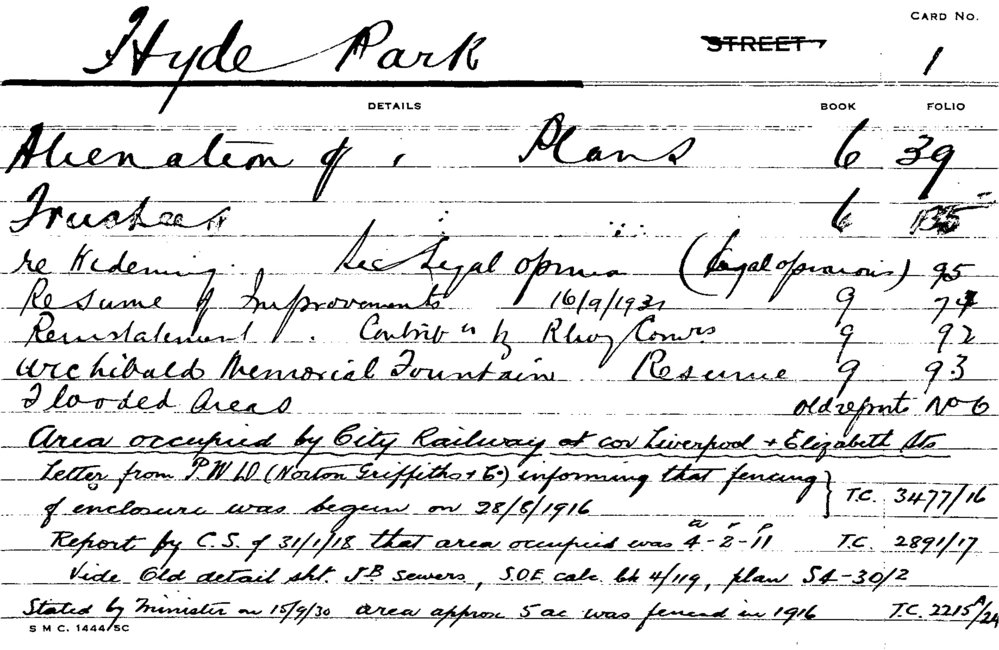 CARD No.
Hyde Park STREET 1
DETAILS BOOK FOLIO
Alienation of Plans 6 39
Trustees 6
re Widening See Legal opinion (Legal opinions) 95
Resume of Improvements 16/9/1931 9 74
Reinstatement. Contribn by Rlwy Comrs 9 92
Archibald Memorial Fountain Resume 9 93
Flooded Areas old reports No 6
Area occupied by City Railway at cor Liverpool + Elizabeth Sts
Letter from P.W.D (Norton Griffiths + Co) informing that fencing
of enclosure was begun on 28/8/1916 } T.C. 3477/16
Report by C.S. of 31/1/18 that area occupied was 4a-2r-11p T.C. 2891/17
Vide Old detail sht. JB sewers, S.O.E. calc. bk 4/119, plan S4-30/2
Stated by Minister on 15/9/30 area approx 5 ac was fenced in 1916 T.C. 2215A/24
S M C. 1444/5C